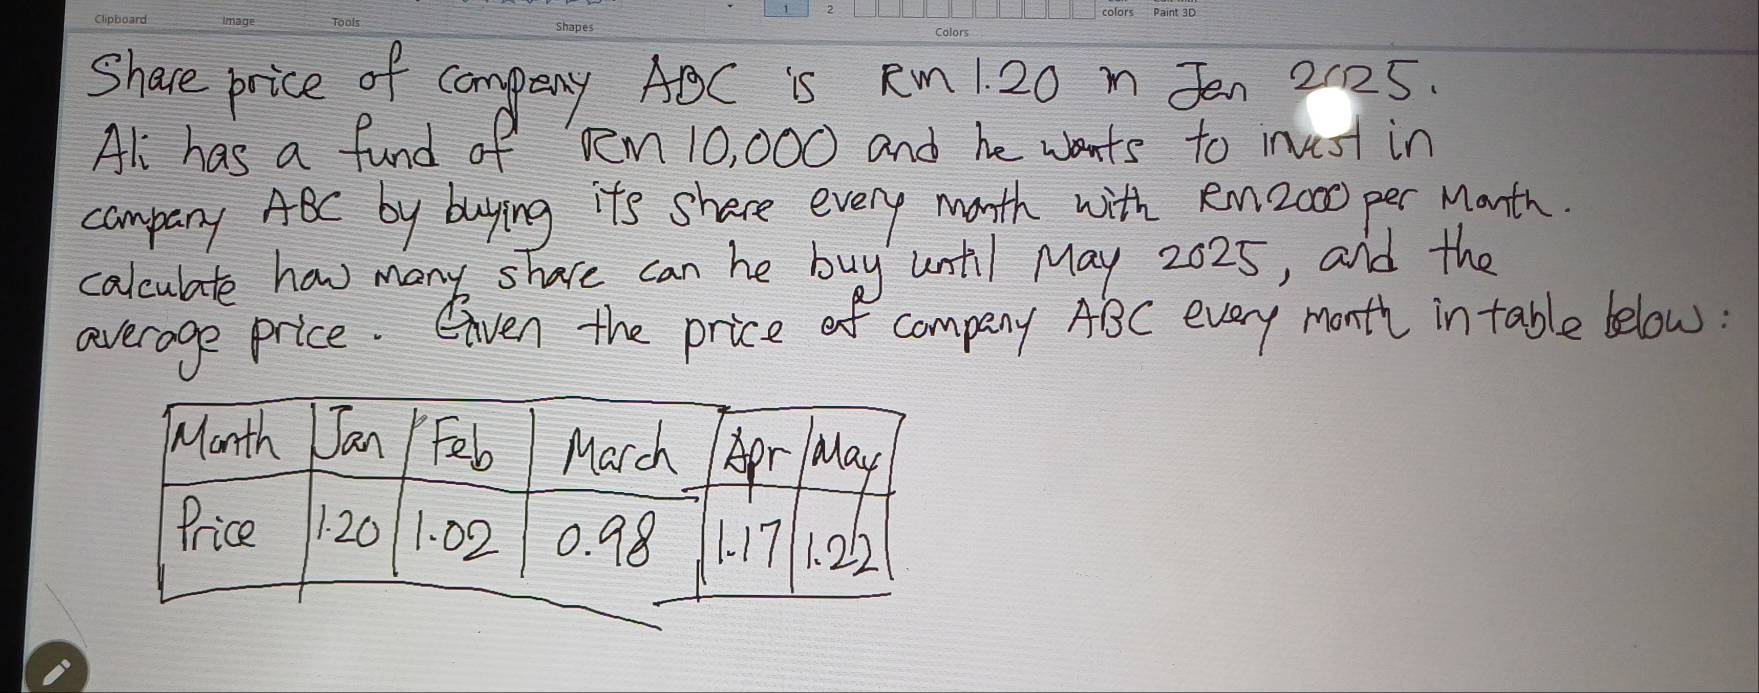 Clipboard Image Tools Shapes 1 2 Colors colors Paint 3D
Share price of company ABC is RM 1.20 in Jan 2025.
Ali has a fund of RM 10,000 and he wants to invest in
company ABC by buying its share every month with RM2000 per Month.
calculate how many share can he buy until May 2025, and the
average price. Given the price of company ABC every month in table below:
Month Jan Feb March Apr May
Price 1.20 1.02 0.98 1.17 1.22